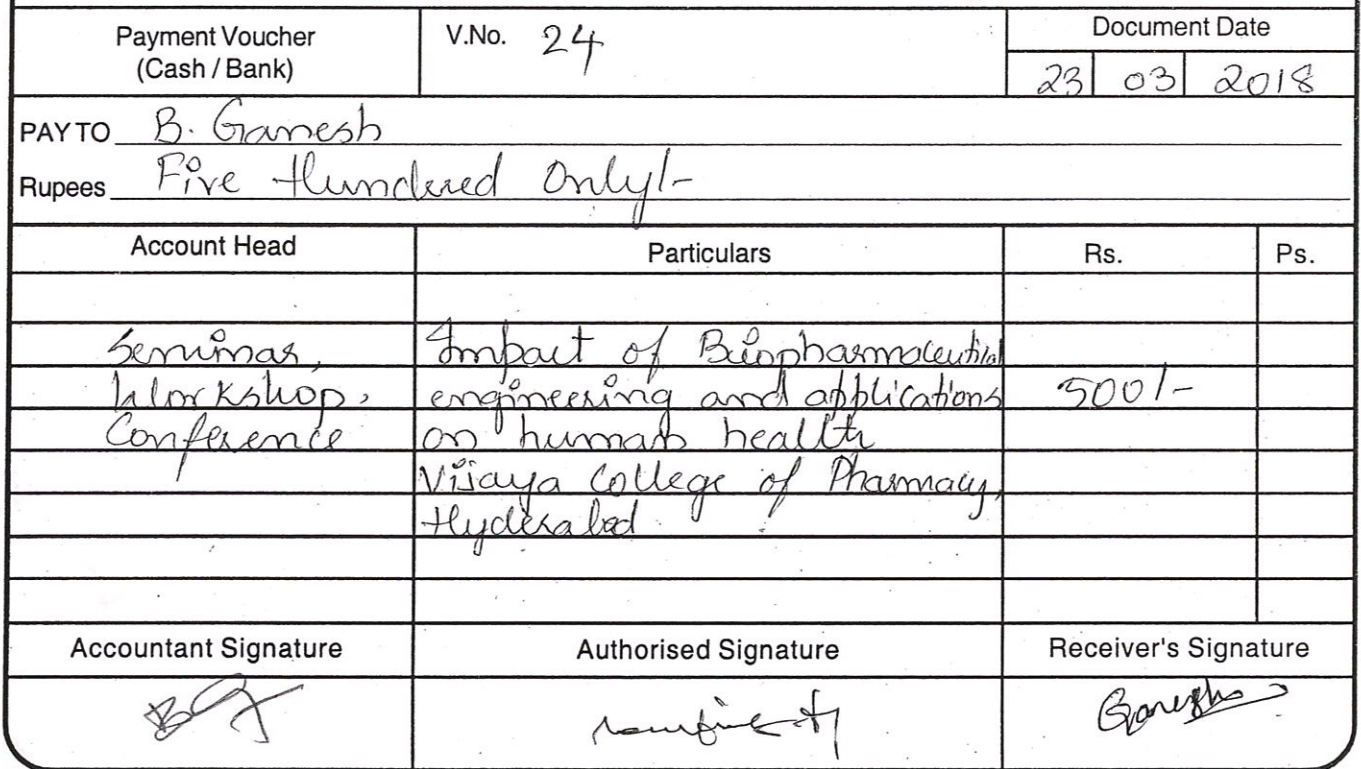 Payment Voucher
(Cash / Bank)
V.No. 24
Document Date
23 03 2018
PAY TO B. Ganesh
Rupees Five Hundered Only/-
Account Head Particulars Rs. Ps.
Seminar, Impact of Biopharmaceutical
Workshop, engineering and applications 500/-
Conference on human health
Vijaya College of Pharmacy,
Hyderabad
Accountant Signature Authorised Signature Receiver's Signature
Ganesh